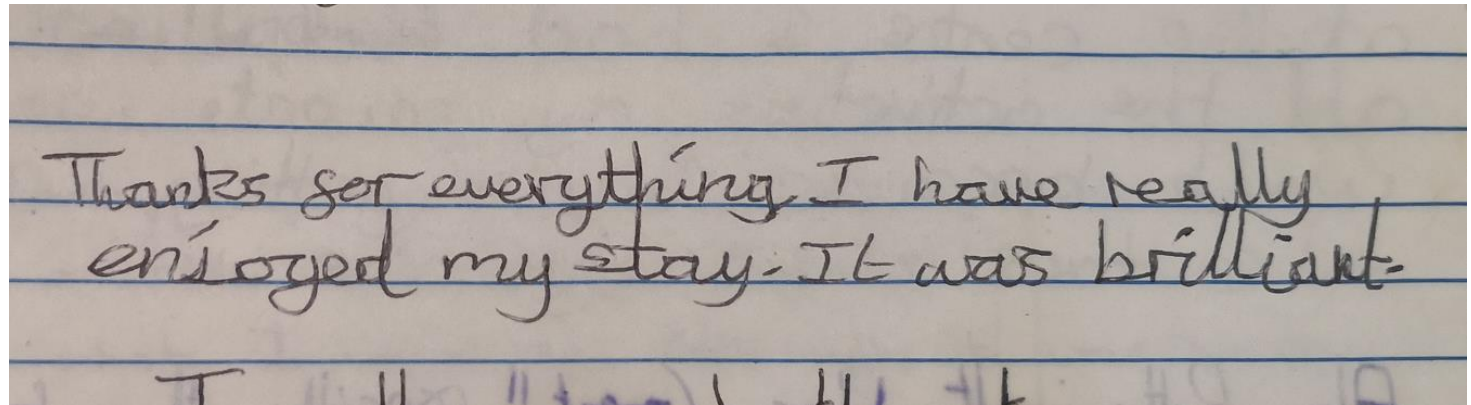 Thanks for everything. I have really
enjoyed my stay. It was brilliant.